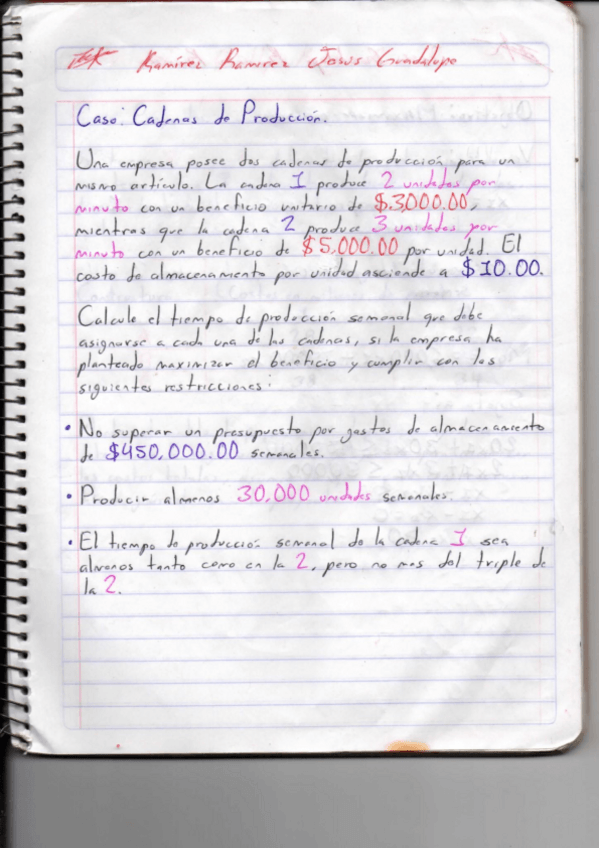 Ramírez Ramírez Jesus Guadalupe
Caso: Cadenas de Producción.
Una empresa posee dos cadenas de producción para un
mismo artículo. La cadena 1 produce 2 unidades por
minuto con un beneficio unitario de $3,000.00,
mientras que la cadena 2 produce 3 unidades por
minuto con un beneficio de $5,000.00 por unidad. El
costo de almacenamiento por unidad asciende a $10.00.
Calcule el tiempo de producción semanal que debe
asignarse a cada una de las cadenas, si la empresa ha
planteado maximizar el beneficio y cumplir con las
siguientes restricciones:
• No superar un presupuesto por gastos de almacenamiento
de $450,000.00 semanales.
• Producir almenos 30,000 unidades semanales.
• El tiempo de producción semanal de la cadena 1 sea
almenos tanto como en la 2, pero no mas del triple de
la 2.